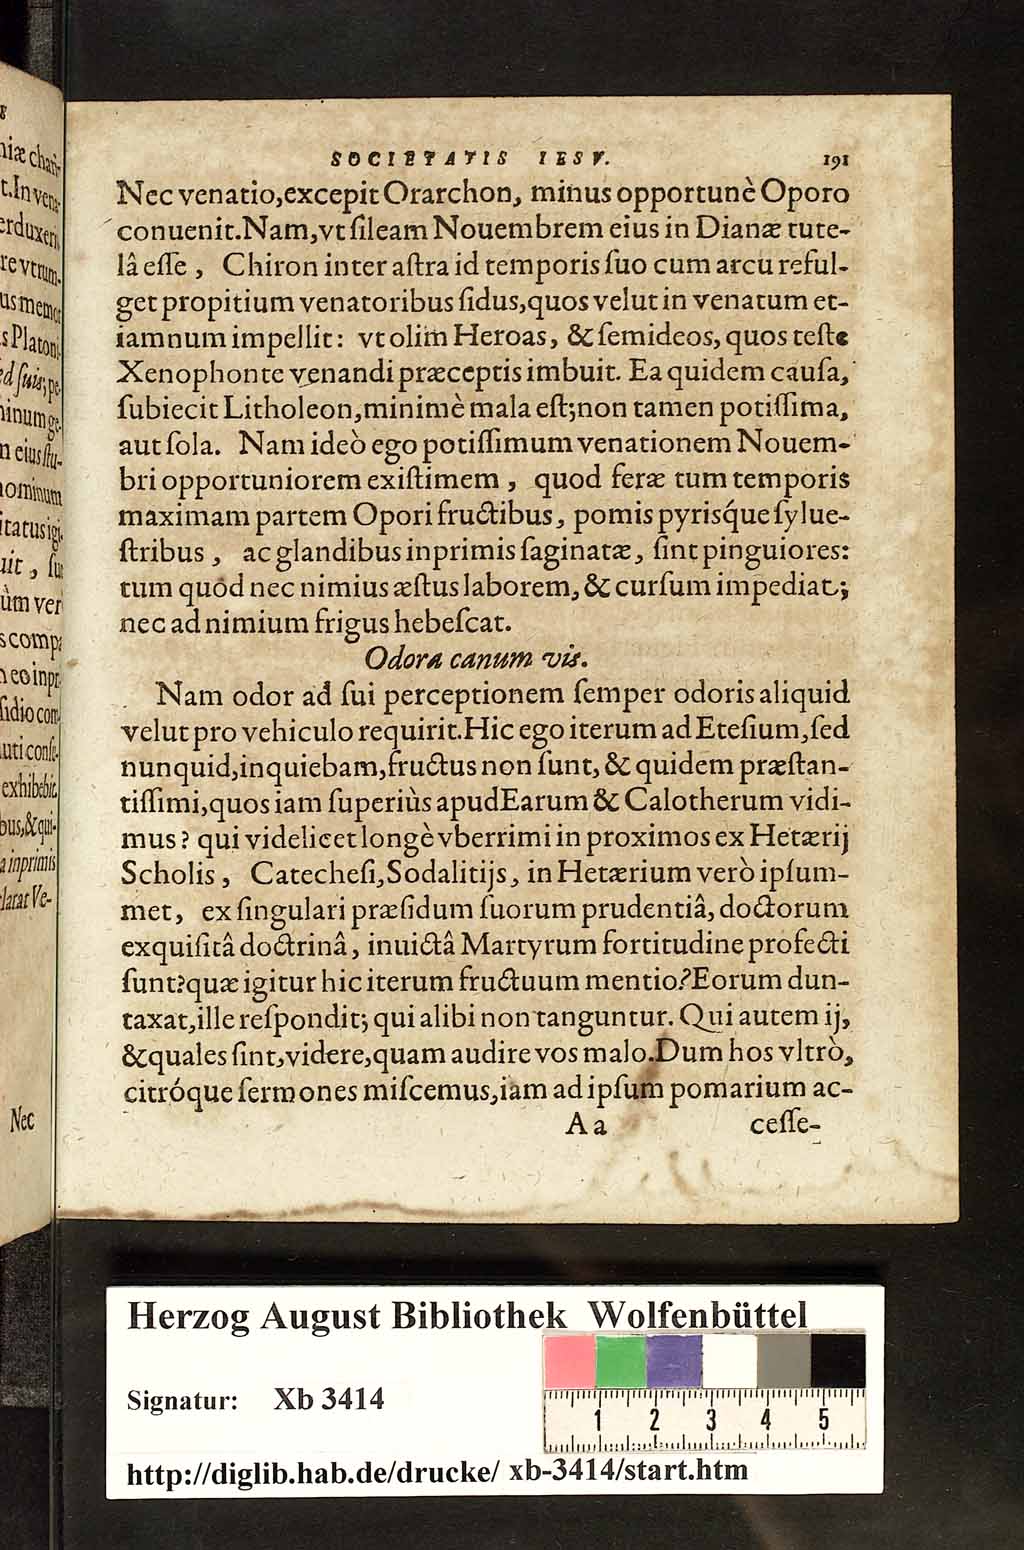 SOCIETATIS IESV. 191
Nec venatio,excepit Orarchon, minus opportunè Oporo
conuenit.Nam,vt ſileam Nouembrem eius in Dianæ tute-
lâ eſſe, Chiron inter aſtra id temporis ſuo cum arcu reful-
get propitium venatoribus ſidus,quos velut in venatum et-
iamnum impellit: vt olim Heroas, & ſemideos, quos teſte
Xenophonte venandi præceptis imbuit. Ea quidem cauſa,
ſubiecit Litholeon,minimè mala eſt;non tamen potiſſima,
aut ſola. Nam ideò ego potiſſimum venationem Nouem-
bri opportuniorem exiſtimem, quod feræ tum temporis
maximam partem Opori fructibus, pomis pyrisq́ue ſylue-
ſtribus, ac glandibus inprimis ſaginatæ, ſint pinguiores:
tum quòd nec nimius æſtus laborem, & curſum impediat;
nec ad nimium frigus hebeſcat.
Odora canum vis.
Nam odor ad ſui perceptionem ſemper odoris aliquid
velut pro vehiculo requirit.Hic ego iterum ad Eteſium,ſed
nunquid,inquiebam,fructus non ſunt, & quidem præſtan-
tiſſimi,quos iam ſuperiùs apud Earum & Calotherum vidi-
mus? qui videlicet longè vberrimi in proximos ex Hetærij
Scholis, Catecheſi,Sodalitijs, in Hetærium verò ipſum-
met, ex ſingulari præſidum ſuorum prudentiâ, doctorum
exquiſitâ doctrinâ, inuictâ Martyrum fortitudine profecti
ſunt?quæ igitur hic iterum fructuum mentio?Eorum dun-
taxat,ille reſpondit; qui alibi non tanguntur. Qui autem ij,
& quales ſint,videre,quam audire vos malo.Dum hos vltrò,
citróque ſermones miſcemus,iam ad ipſum pomarium ac-
Aa ceſſe-
Nec
Herzog August Bibliothek Wolfenbüttel
Signatur: Xb 3414
1 2 3 4 5
http://diglib.hab.de/drucke/ xb-3414/start.htm